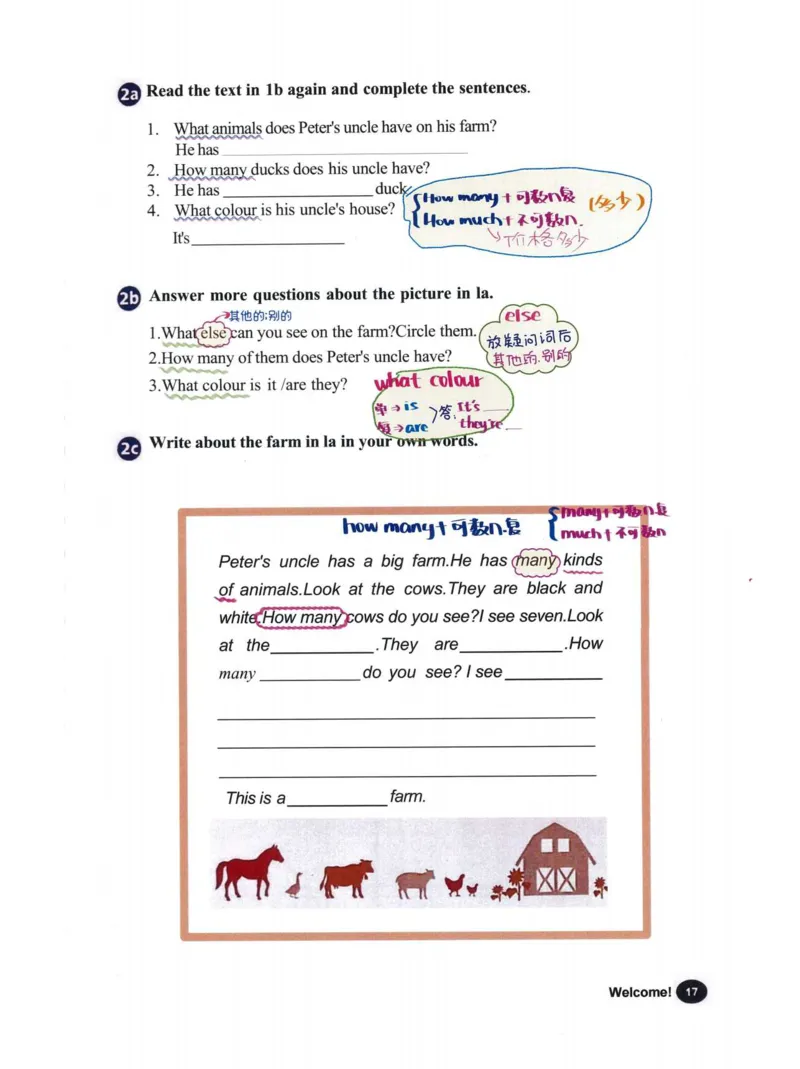 2a Read the text in 1b again and complete the sentences.
1. What animals does Peter's uncle have on his farm?
He has
2. How many ducks does his uncle have?
3. He has duck
How many+可数n复 (多少)
4. What colour is his uncle's house?
How much+不可数n.
It's
价格多少
2b Answer more questions about the picture in la.
其他的;别的
else
1.What else can you see on the farm?Circle them.
放疑问词后
2.How many of them does Peter's uncle have?
其他的.别的
3.What colour is it /are they?
what colour
单→is 答. It's
复→are they're
2c Write about the farm in la in your own words.
how many+可数n.复
many+可数n复
much+不可数n
Peter's uncle has a big farm.He has many kinds
of animals.Look at the cows.They are black and
white.How many cows do you see?I see seven.Look
at the .They are .How
many do you see? I see
This is a farm.
Welcome! 17